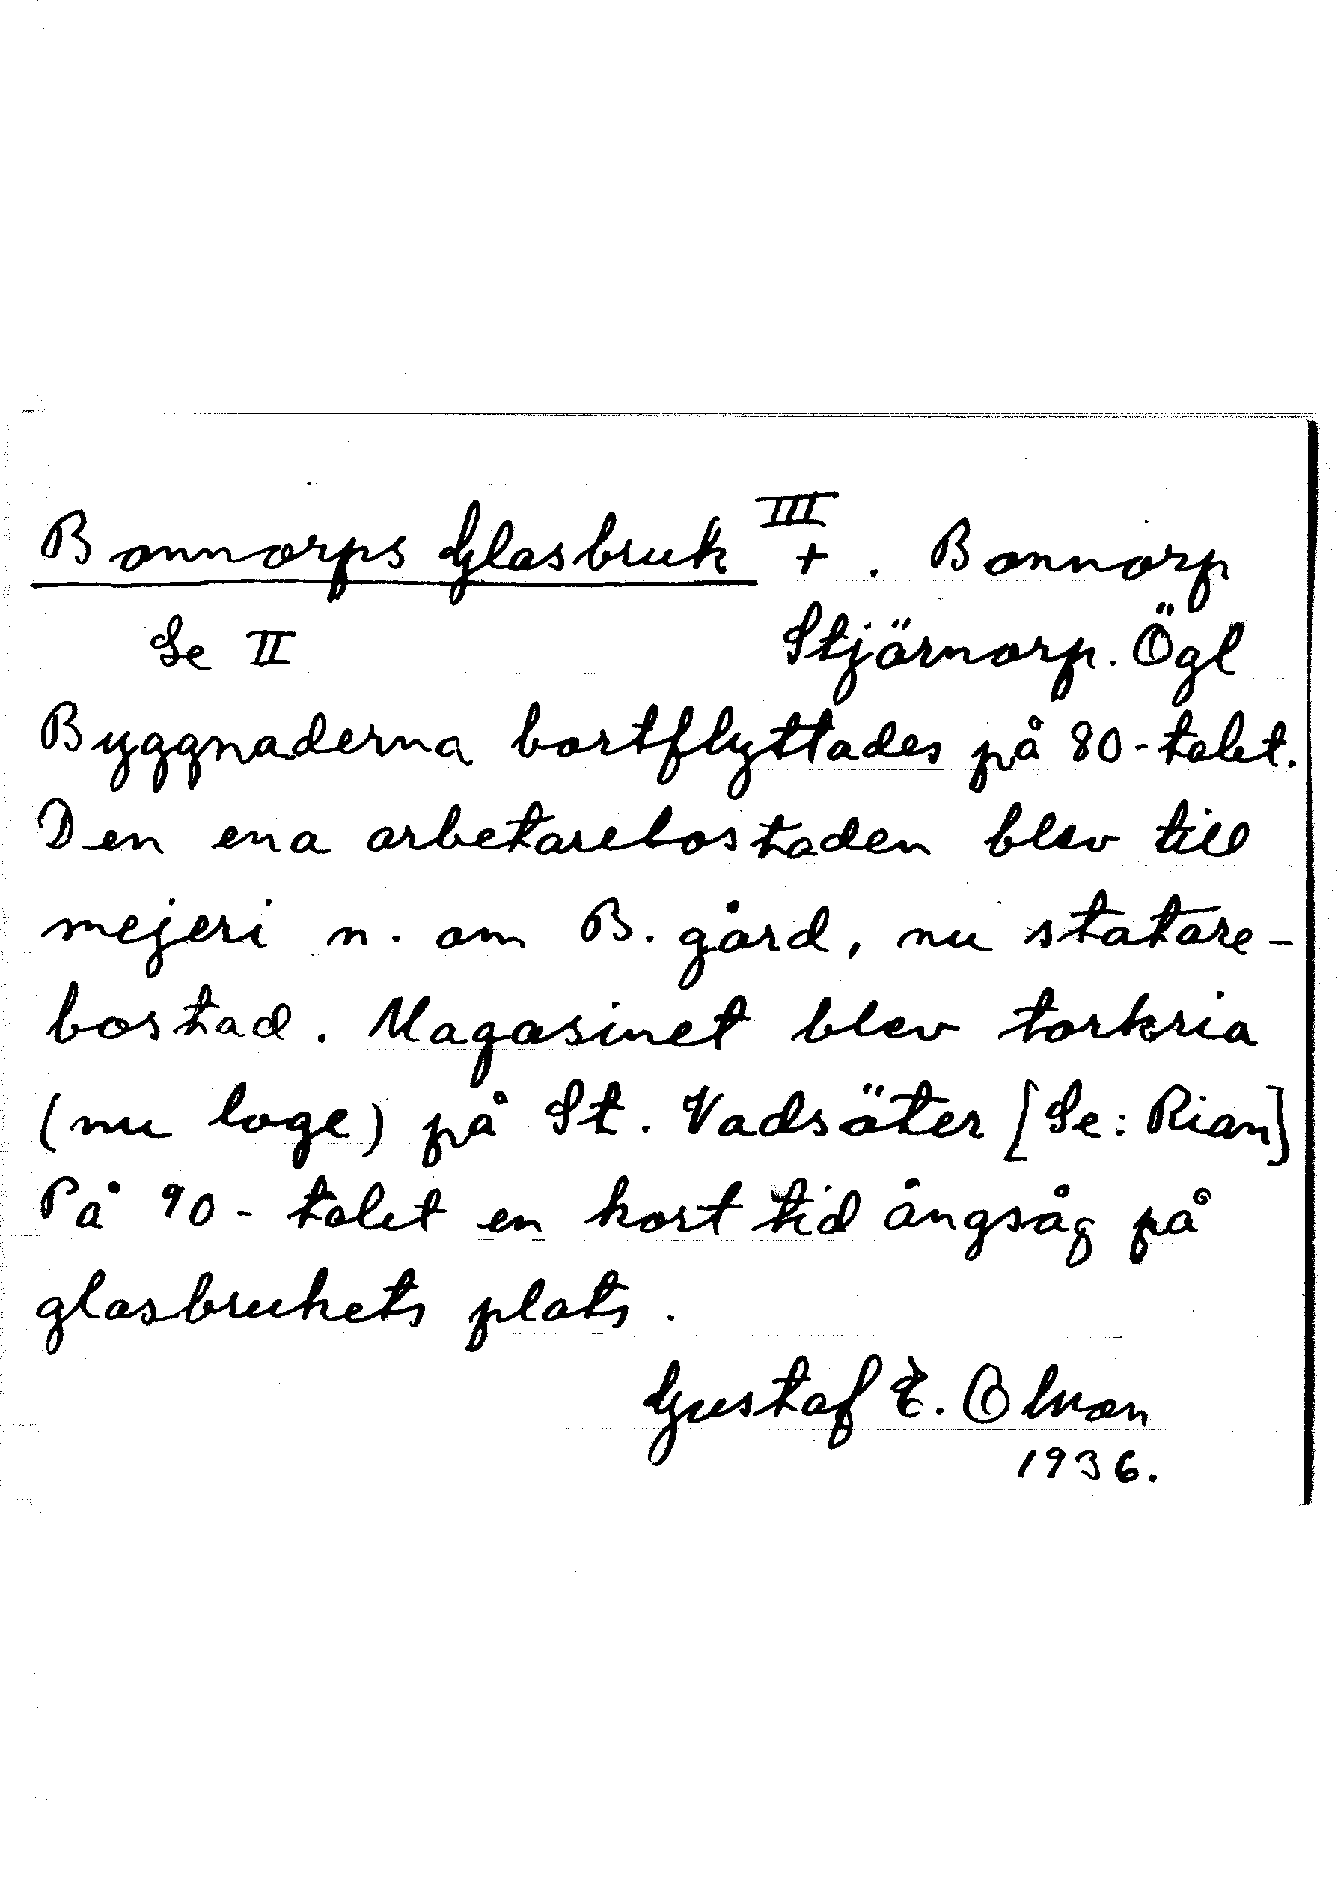 Bonnorps Glasbruk III + . Bonnorp
Se II Stjärnorp. Ögl
Byggnaderna bortflyttades på 80-talet.
Den ena arbetarebostaden blev till
mejeri n. om B. gård, nu statare-
bostad. Magasinet blev torkria
(nu loge) på St. Vadsäter [Se: Rian]
På 90-talet en kort tid ångsåg på
glasbrukets plats.
Gustaf E.
1936.